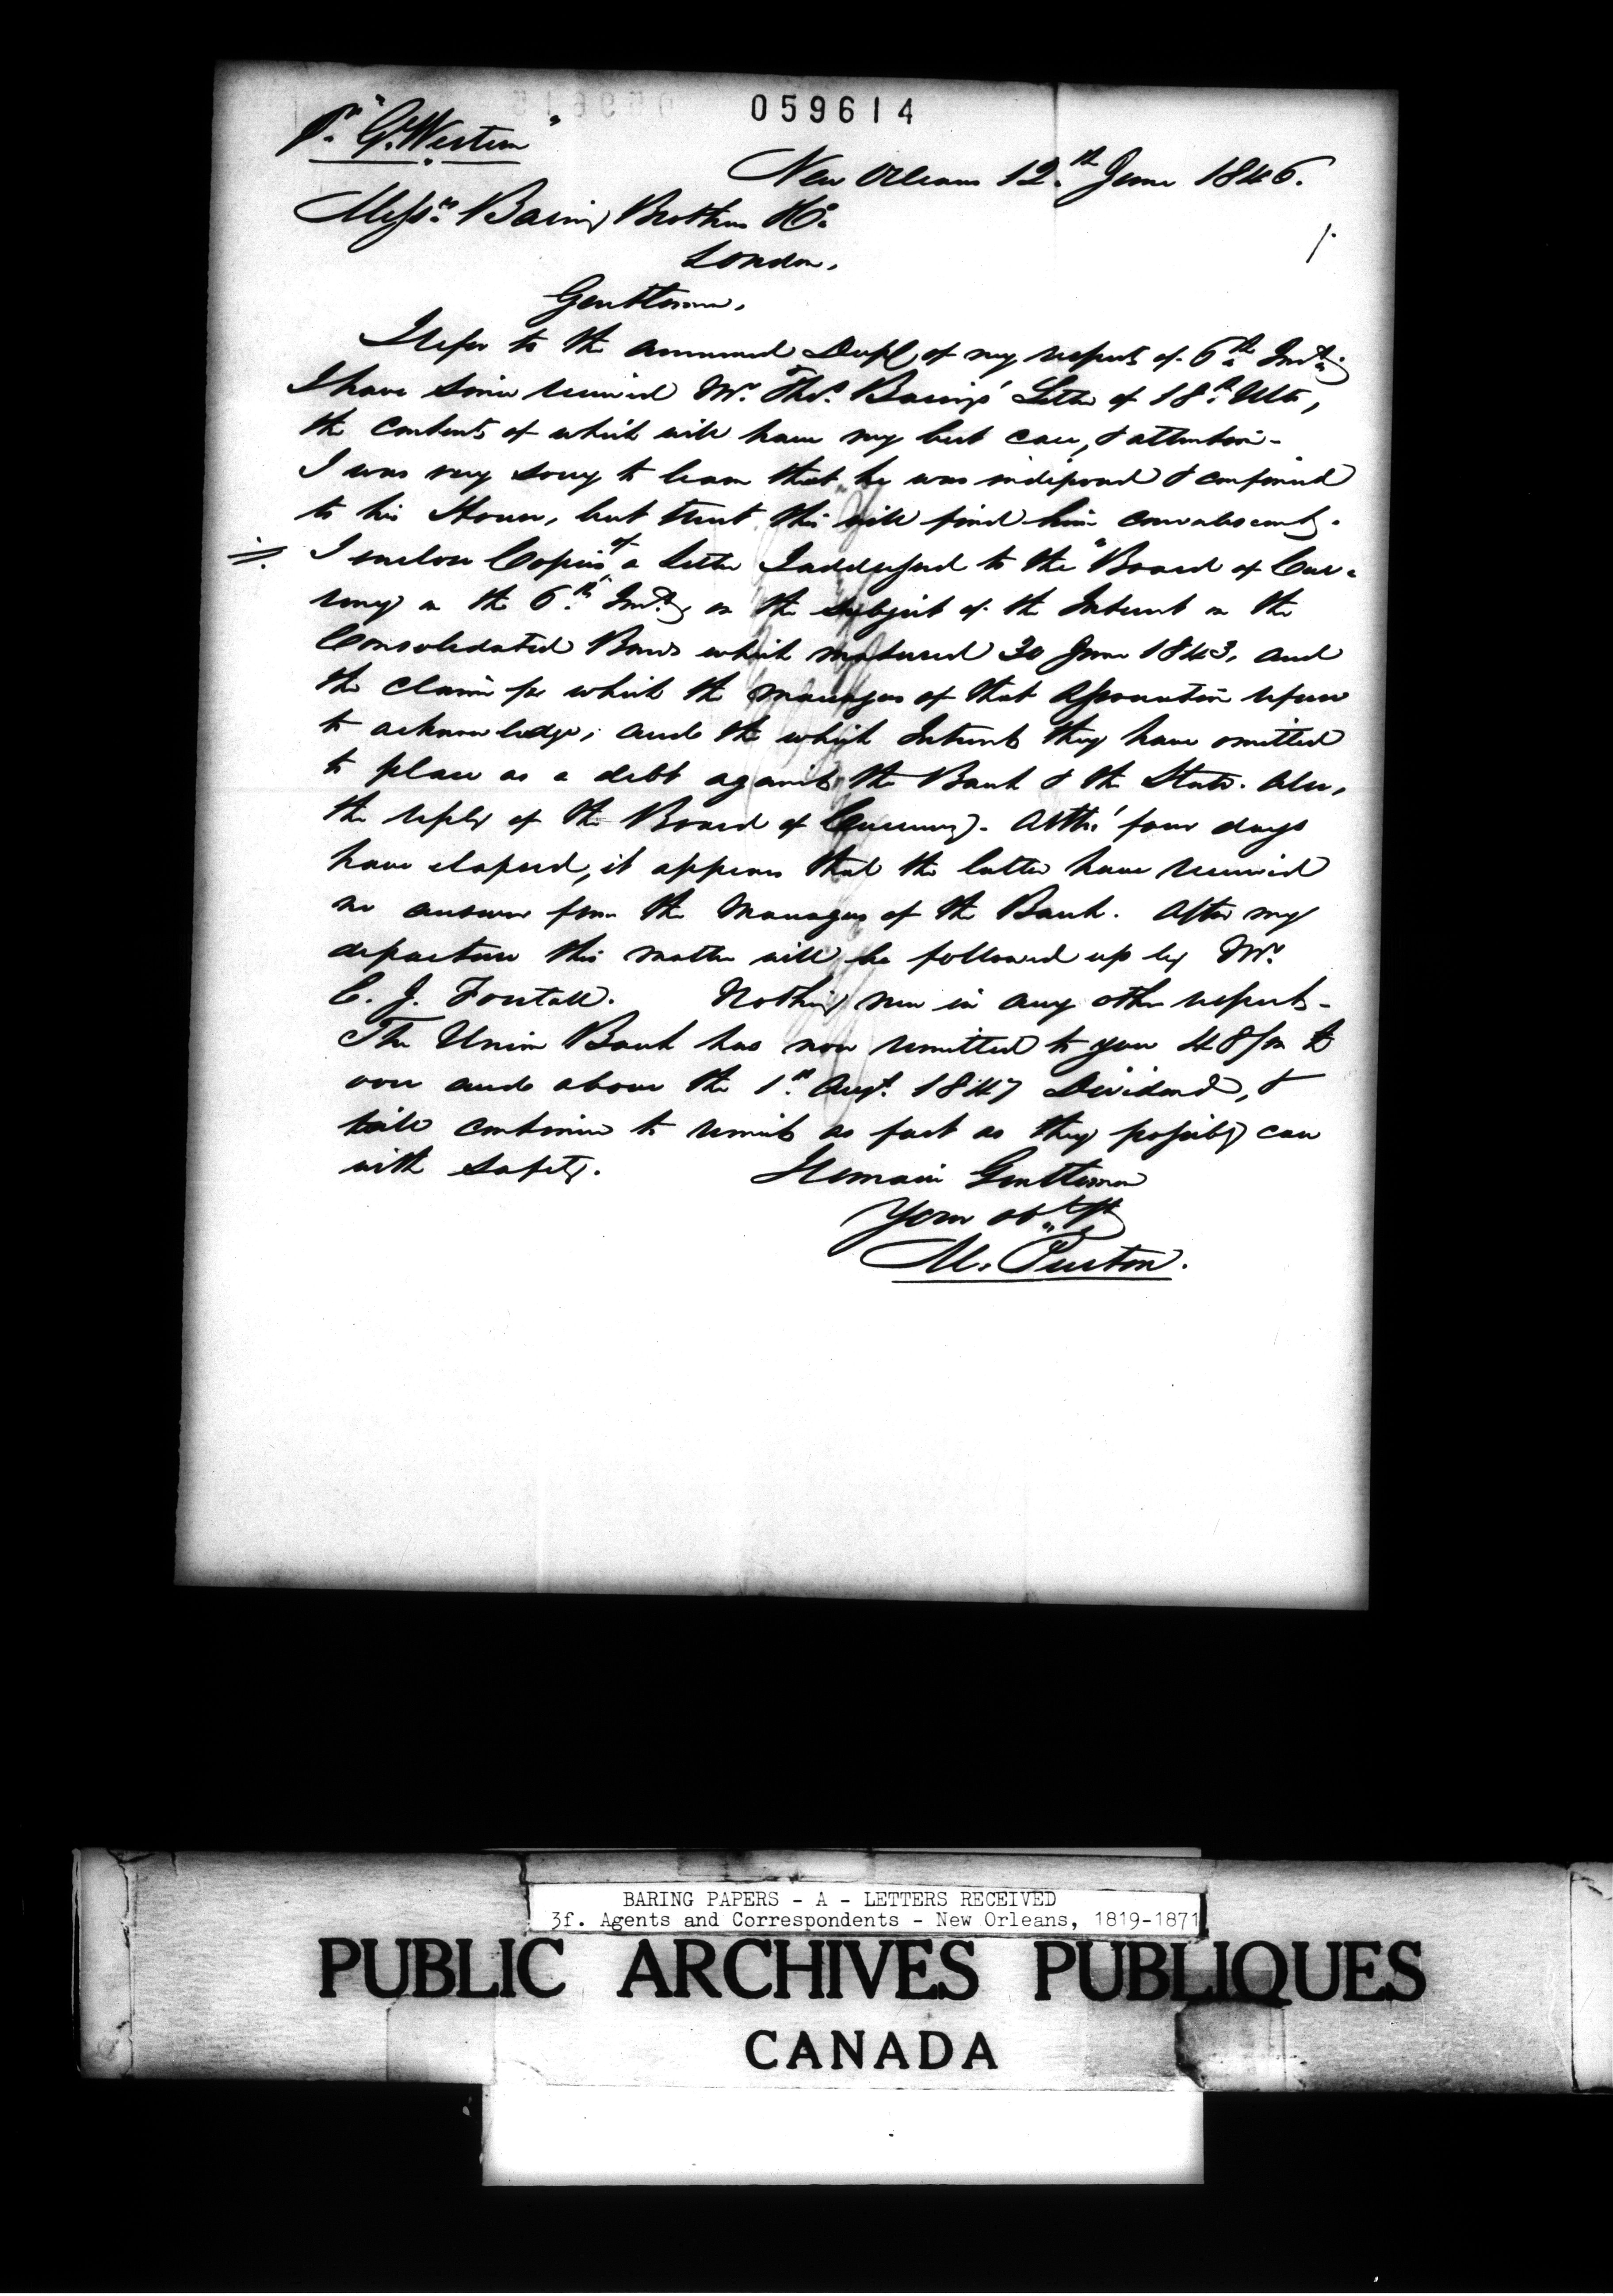 059614
Pr. "Gt. Western"
New Orleans 12th June 1846.
Messrs. Baring Brothers & Co.
London.
1.
Gentlemen,
I refer to the annexed Dupl. of my respects of 6th Inst.
I have since received Mr. Thos. Baring's Letter of 18th Ulto,
the contents of which will have my best care, & attention -
I was very sorry to learn that he was indisposed & confined
to his House, but trust this will find him convalescent.
I enclose Copies of a Letter I addressed to the "Board of Cur-
rency" on the 6th Inst. on the subject of the Interest on the
Consolidated Bonds which matured 30 June 1843, and
the claim for which the managers of that Association refuse
to acknowledge; and the which Interest they have omitted
to place as a debt against the Bank & the State. Also,
the reply of the Board of Currency. Altho' four days
have elapsed, it appears that the latter have received
no answer from the Managers of the Bank. After my
departure this matter will be followed up by Mr.
E. J. Forstall. Nothing new in any other respects -
The Union Bank has now remitted to you 48/m $
over and above the 1st Augt. 1847 Dividend, &
will continue to remit as fast as they possibly can
with safety. I remain Gentlemen
Your obt. St.
M. Purton.
BARING PAPERS - A - LETTERS RECEIVED
3f. Agents and Correspondents - New Orleans, 1819-1871
PUBLIC ARCHIVES PUBLIQUES
CANADA